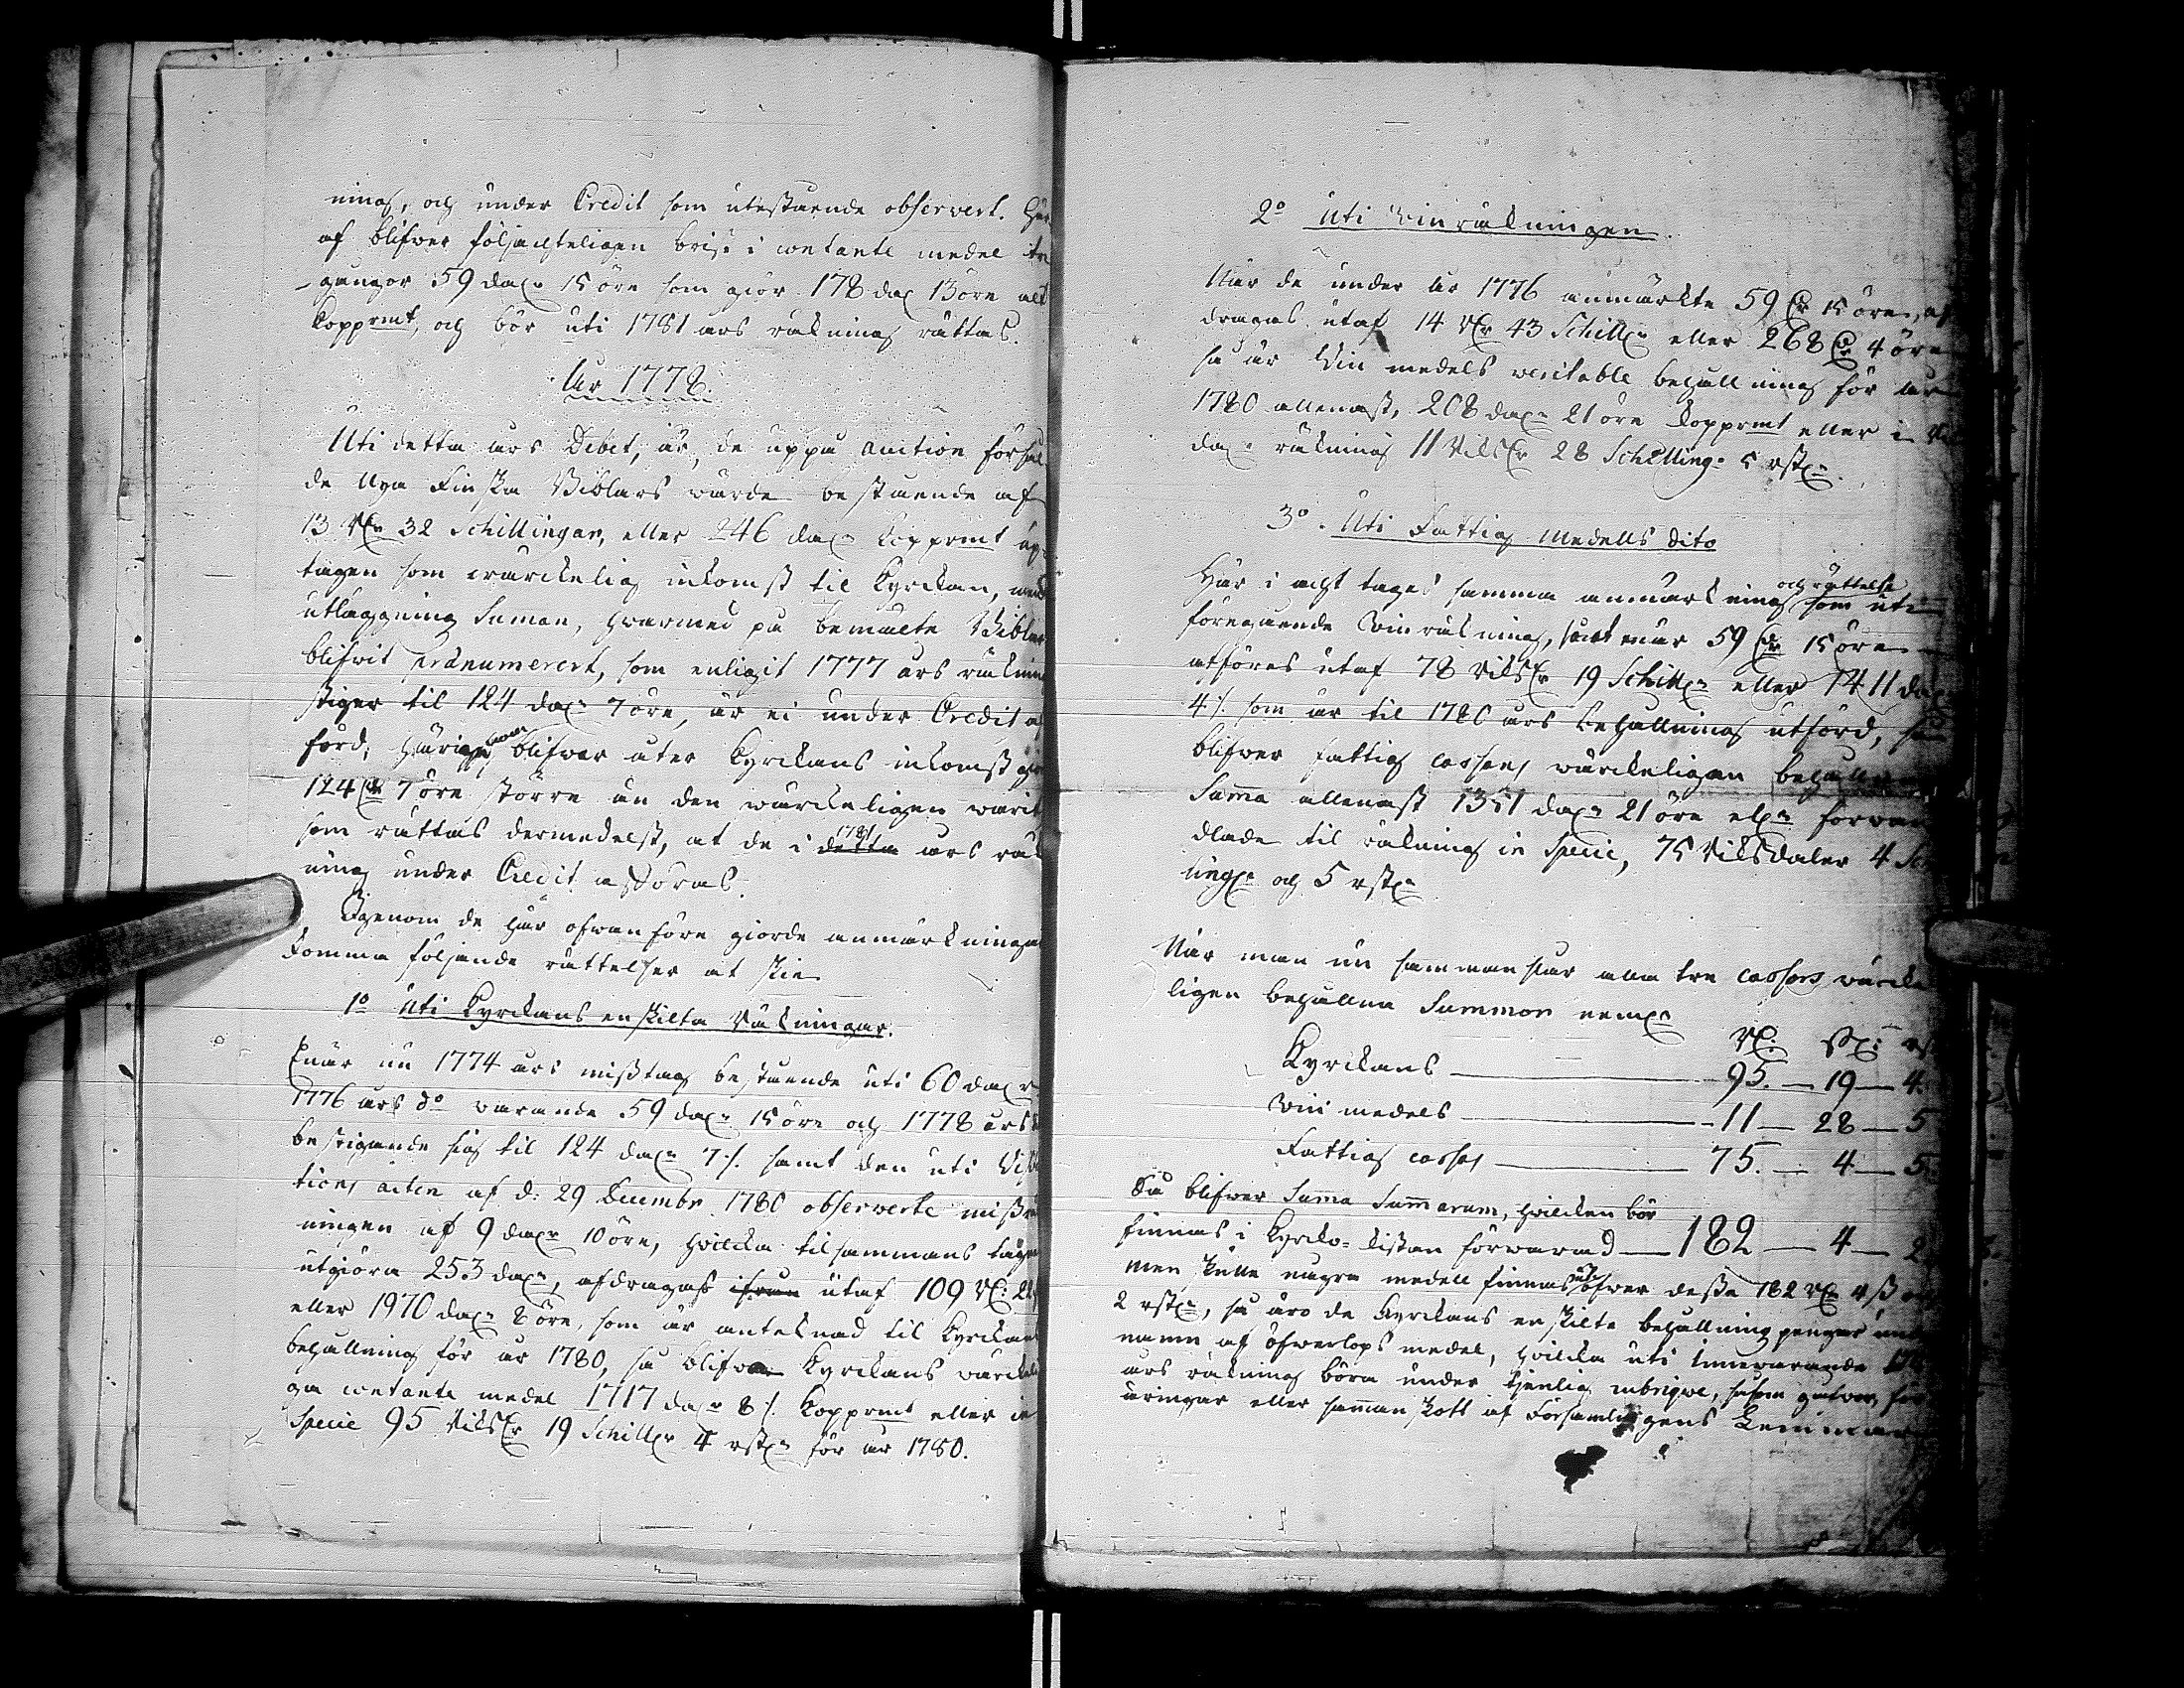 ning, och under Credit som utestående observert. Här
af blifwer följackteligen brist i contante medel tre
gångor 59 dal:r 15 öre som giör 178 dal 13 öre alt
Koppr:mt, och bör uti 1781 års räkning rättas.
År 1778.
Uti detta års Debet, är, de uppå auction försål
de Nya Finska Biblars wärde bestående af
13 R:dr 32 Schillingar, eller 246 dal:r Koppr:mt up-
tagen som wärckelig inkomst til Kyrckan, men
utläggning Summan, hwarmed på bemälte Biblar
blifwit prænumerert, som enligit 1777 års räkning
stiger til 124 dal:r 7 öre, är ei under Credit af
förd; härigenom blifwer åter Kyrckans inkomst
124 d:r 7 öre större än den wärckeligen warit
som rättas dermedelst, at de i detta 1781 års räk
ning under Credit afföras.
Igenom de här ofwanföre giorde anmärckningar
komma följande rättelser at skie
1:o Uti Kyrckans enskilta Räkningar.
Enär nu 1774 års misstag bestående uti 60 dal:r
1776 års d:o warande 59 dal:r 15 öre och 1778 års
bestigande sig til 124 dal:r 7 /. samt den uti Visita
tions acten af d: 29 Decembr. 1780 observerte missräk
ningen af 9 dal:r 10 öre, hwilcka tilsammans tagne
utgiöra 253 dal:r, afdragas ifrån utaf 109 R: 22
eller 1970 dal:r 8 öre, som är antecknad til Kyrckans
behållning för år 1780, så blifwa Kyrckans wärckeli
ga contante medel 1717 dal:r 8 /. Koppr:mt eller in
Specie 95 Riksd:r 19 Schill:r 4 rst:r för år 1780.
2:o Uti Winräkningen.
När de under år 1776 anmärckte 59 d:r 15 öre, af
dragas utaf 14 R:dr 43 Schill:r eller 268 d:r 4 öre
så är Win medels veritable behållning för år
1780 allenast, 208 dal:r 21 öre Koppr:mt eller i Riks
dal:r räkning 11 Riksd:r 28 Schilling:r 5 rst:r.
3:o. Uti Fattig Medells dito
Här i acht tages samma anmärckning och rättelse som uti
föregående Winräkning, samt enär 59 d:r 15 öre
afföres utaf 78 Riksd:r 19 Schill:r eller 1411 dal:r
4 /. som är til 1780 års behållning utförd, så
blifwer fattig cassans wärckeligen behållne
Summa allenast 1351 dal:r 21 öre el:r förwan
dlade til räkning in Specie, 75 Riksdaler 4 Schil
ling:r och 5 rst:r
När man nu samman slår alla tre cassors wärcke
ligen behållna Summor neml:n
R: S: rs:
Kyrckans 95. — 19 — 4.
Win medels 11 — 28 — 5
Fattig cassas 75. — 4 — 5.
Så blifwer Summa Summarum, hwilcken bör
finnas i Kyrcko-kistan förwarad — 182 — 4 — 2
men skulle någre medell finnas utöfwer desse 182 R: 4 s och
2 rst:r, så äro de Kyrckans enskilte behållning pengar under
namn af öfwerlops medel, hwilcka uti innewarande 1781
års räkning böra under tjenlig rubrique, såsom gåfwor, för
äringar eller samman skott af Församlingens Ledamöter